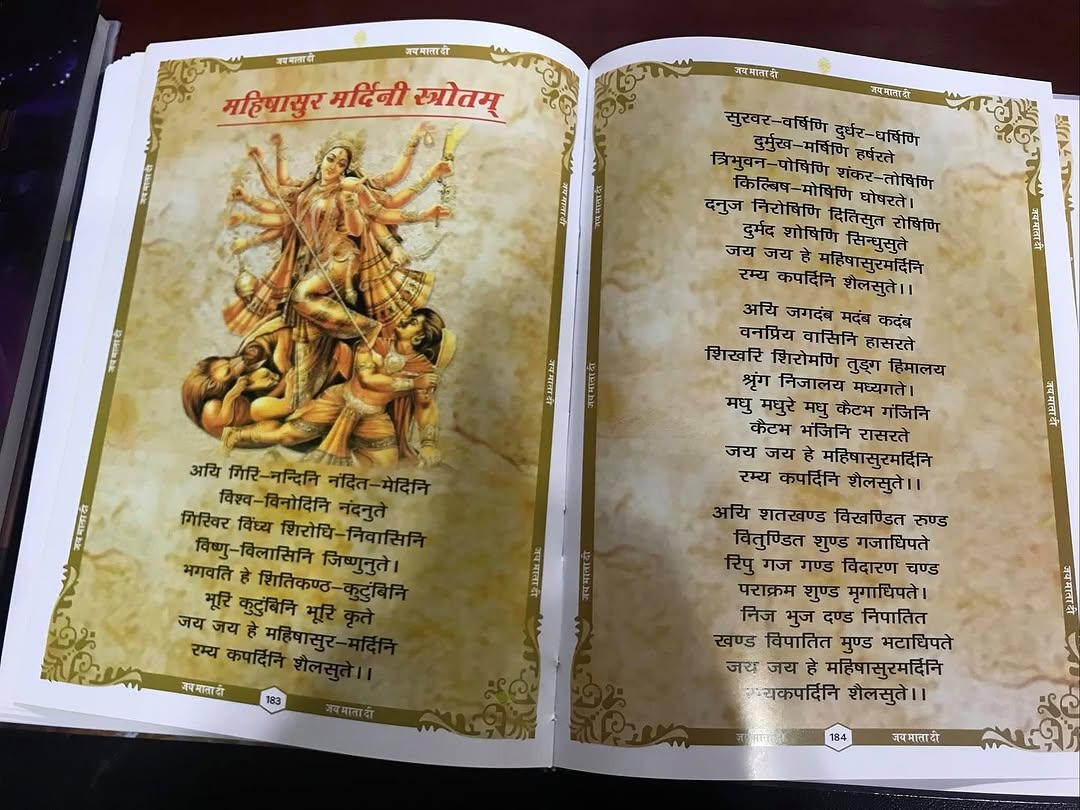 जय माता दी
जय माता दी
महिषासुर मर्दिनी स्त्रोतम्
जय माता दी
जय माता दी
जय माता दी
जय माता दी
जय माता दी
जय माता दी
अयि गिरि-नन्दिनि नंदित-मेदिनि
विश्व-विनोदिनि नंदनुते
गिरिवर विंध्य शिरोधि-निवासिनि
विष्णु-विलासिनि जिष्णुनुते।
भगवति हे शितिकण्ठ-कुटुंबिनि
भूरि कुटुंबिनि भूरि कृते
जय जय हे महिषासुर-मर्दिनि
रम्य कपर्दिनि शैलसुते।।
जय माता दी
183
जय माता दी
जय माता दी
जय माता दी
सुरवर-वर्षिणि दुर्धर-धर्षिणि
दुर्मुख-मर्षिणि हर्षरते
त्रिभुवन-पोषिणि शंकर-तोषिणि
किल्बिष-मोषिणि घोषरते।
दनुज निरोषिणि दितिसुत रोषिणि
दुर्मद शोषिणि सिन्धुसुते
जय जय हे महिषासुरमर्दिनि
रम्य कपर्दिनि शैलसुते।।
अयि जगदंब मदंब कदंब
वनप्रिय वासिनि हासरते
शिखरि शिरोमणि तुङ्ग हिमालय
श्रृंग निजालय मध्यगते।
मधु मधुरे मधु कैटभ गंजिनि
कैटभ भंजिनि रासरते
जय जय हे महिषासुरमर्दिनि
रम्य कपर्दिनि शैलसुते।।
अयि शतखण्ड विखण्डित रुण्ड
वितुण्डित शुण्ड गजाधिपते
रिपु गज गण्ड विदारण चण्ड
पराक्रम शुण्ड मृगाधिपते।
निज भुज दण्ड निपातित
खण्ड विपातित मुण्ड भटाधिपते
जय जय हे महिषासुरमर्दिनि
रम्यकपर्दिनि शैलसुते।।
जय माता दी
जय माता दी
जय माता दी
जय माता दी
जय माता दी
जय माता दी
जय माता दी
184
जय माता दी